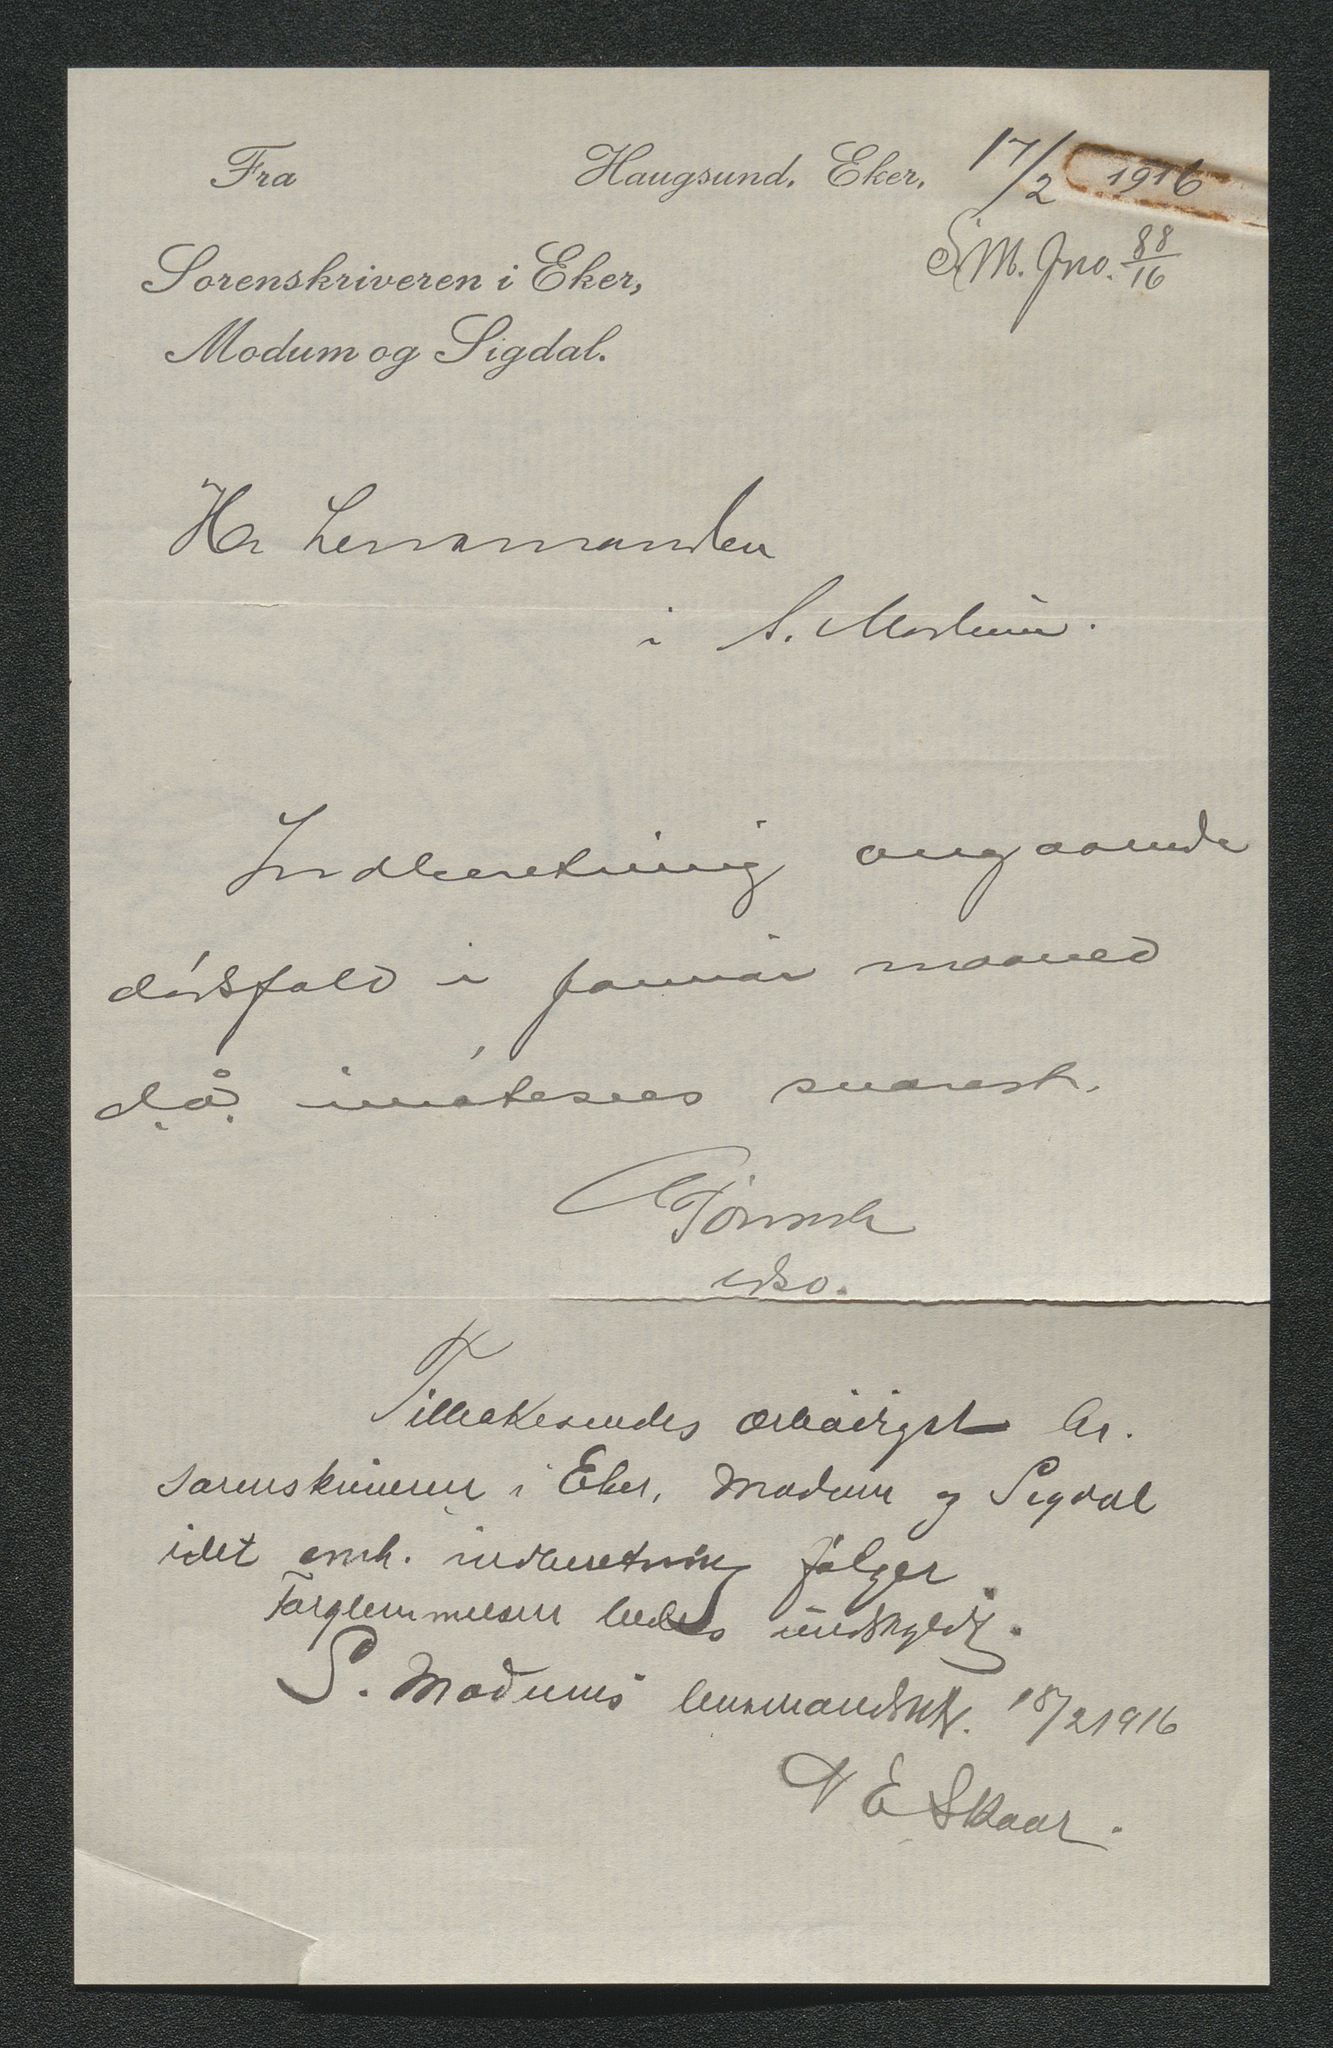 Fra Haugsund, Eker, 17/2 1916
S. M. Jno. 88/16
Sorenskriveren i Eker,
Modum og Sigdal.
Hr Lensmanden
i S. Modum.
Indberetning angaaende
dødsfald i januar maaned
d.å. imøtesees snarest.
Tilbakesendes ærbødigst hr.
sorenskriveren i Eker, Modum og Sigdal
idet omh. indberetning følger.
Forglemmelsen bedes undskyldt.
S. Modums lensmandsktr. 18/2 1916
E Skaar.